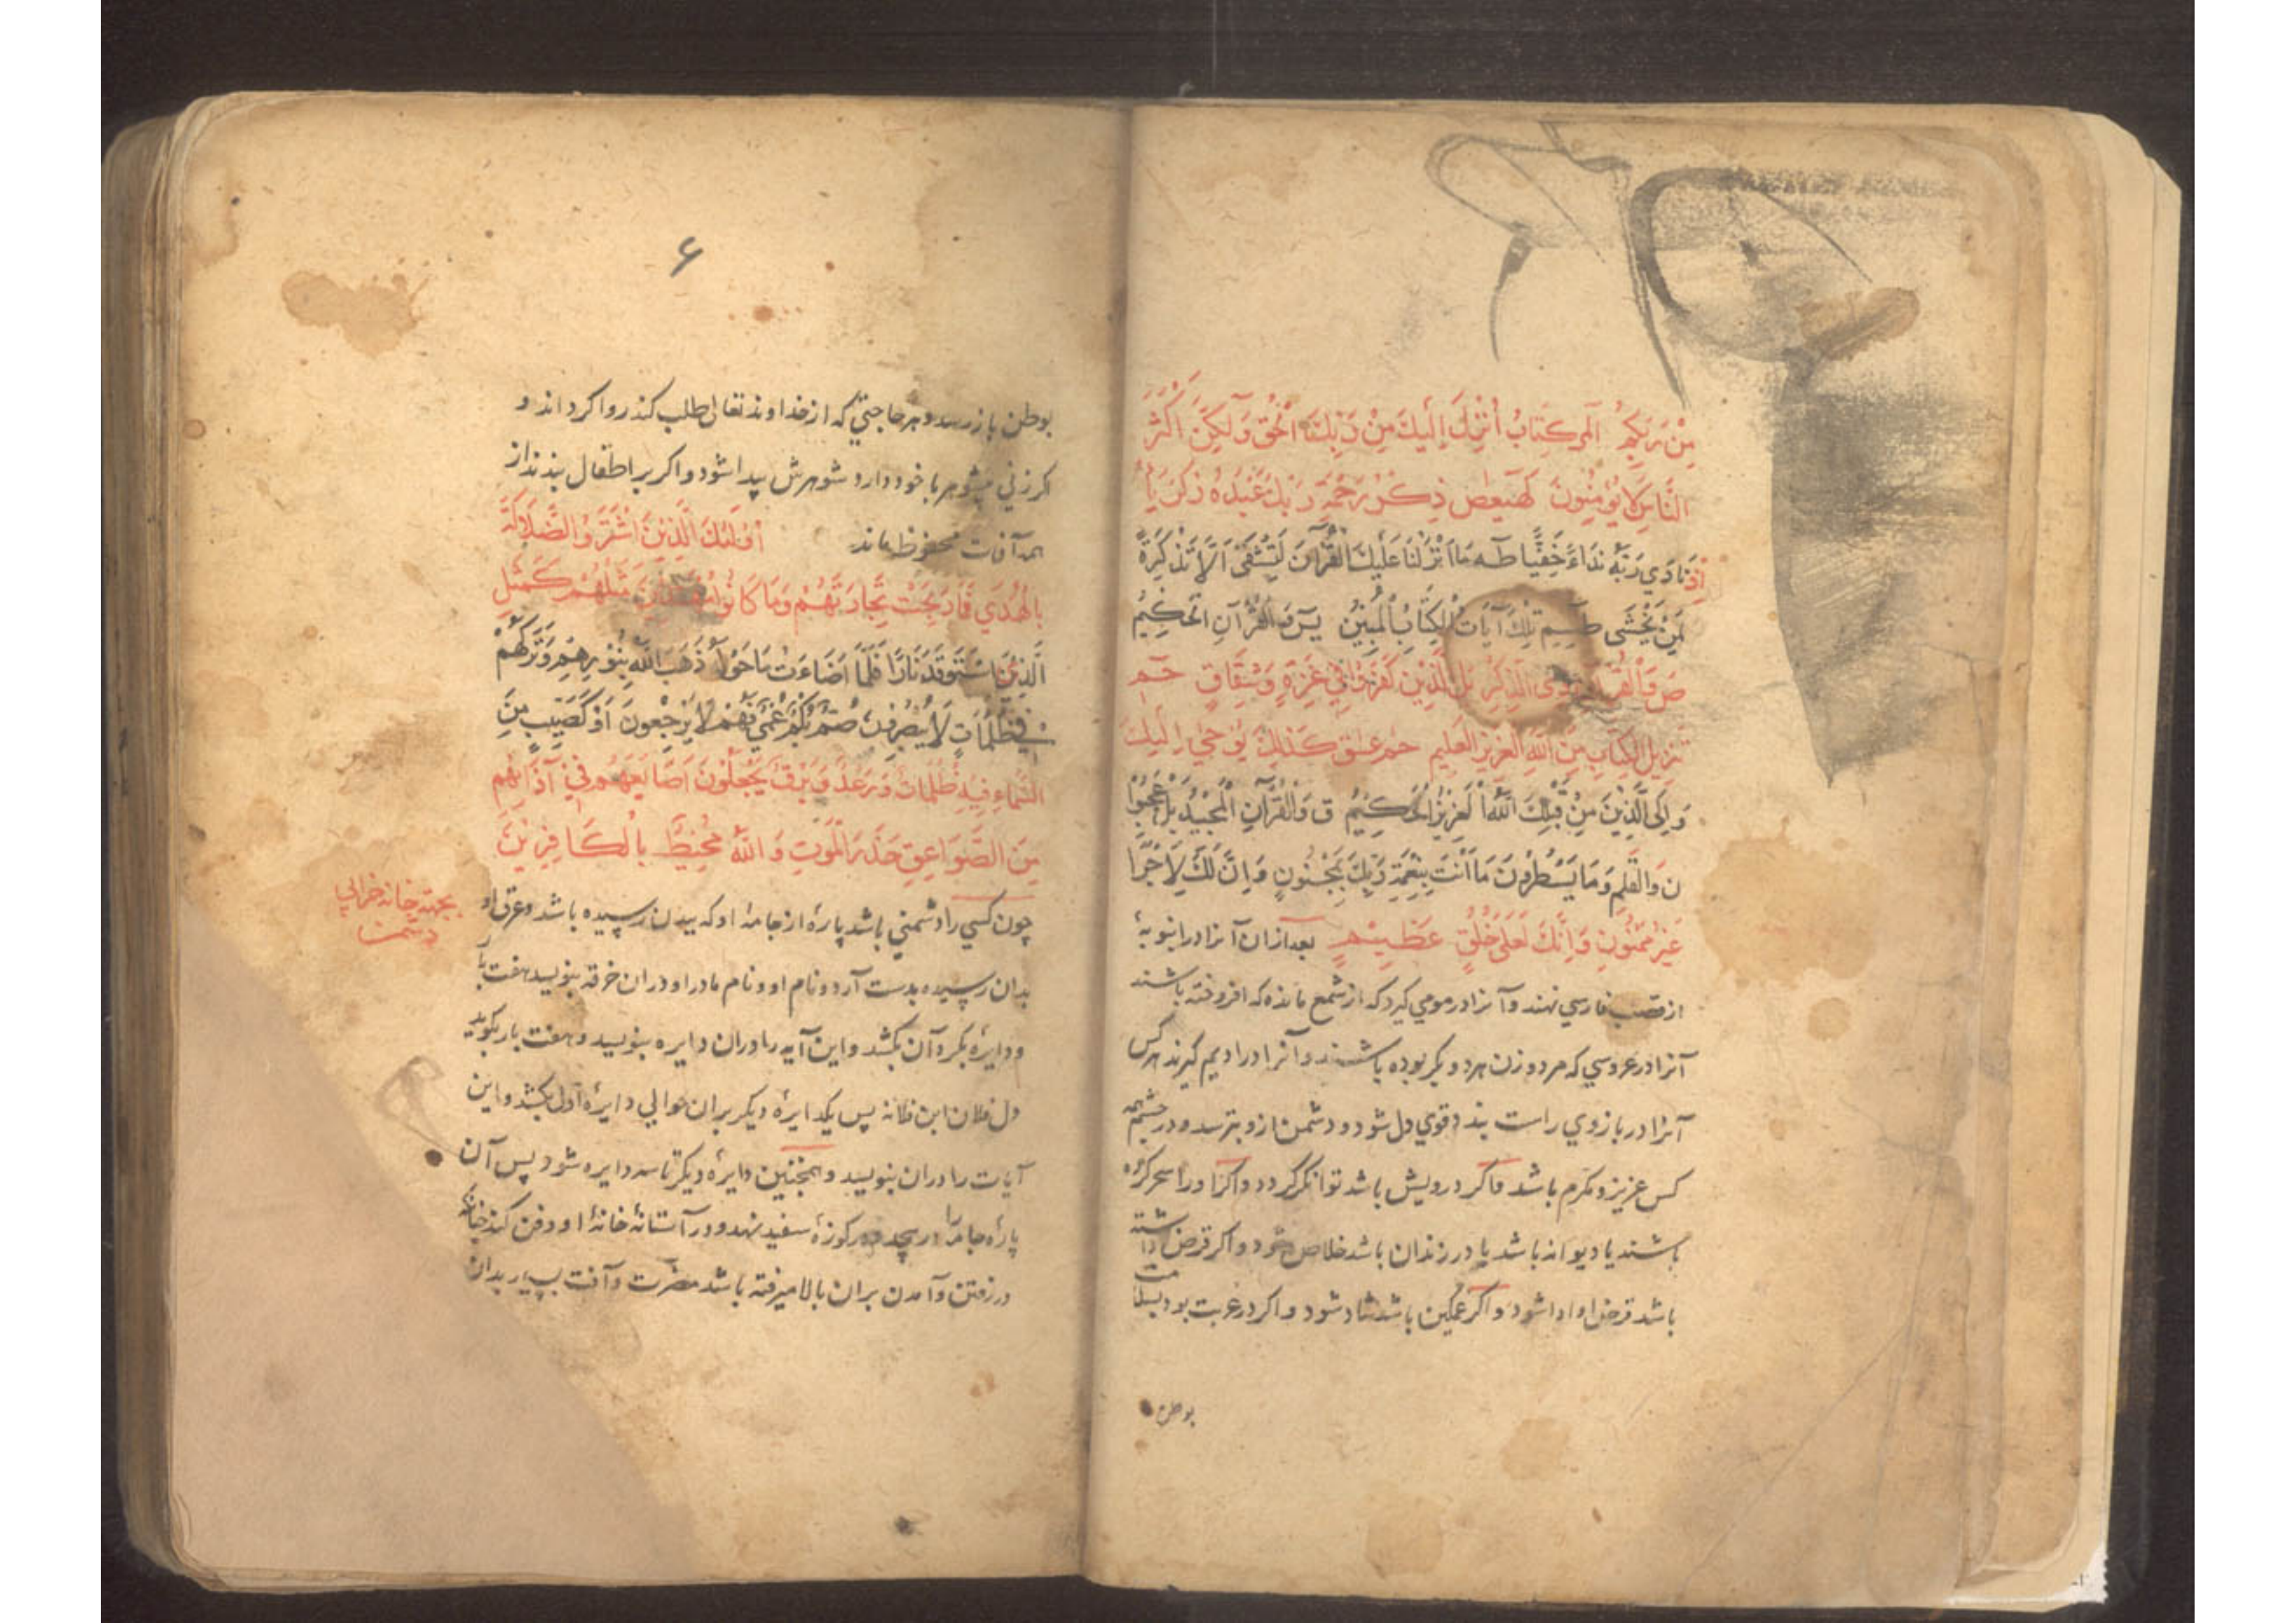 مِنْ رَبِّكُمْ الٓمرٓ كِتَابٌ أُنْزِلَ إِلَيْكَ مِنْ رَبِّكَ الْحَقُّ وَلَكِنَّ أَكْثَرَ
النَّاسِ لَا يُؤْمِنُونَ كٓهٰيٰعٓصٓ ذِكْرُ رَحْمَةِ رَبِّكَ عَبْدَهُ زَكَرِيَّا
إِذْ نَادَى رَبَّهُ نِدَاءً خَفِيًّا طٓهٰ مَا أَنْزَلْنَا عَلَيْكَ الْقُرْآنَ لِتَشْقَى إِلَّا تَذْكِرَةً
لِمَنْ يَخْشَى طٓسٓمٓ تِلْكَ آيَاتُ الْكِتَابِ الْمُبِينِ يٓسٓ وَالْقُرْآنِ الْحَكِيمِ
صٓ وَالْقُرْآنِ ذِي الذِّكْرِ بَلِ الَّذِينَ كَفَرُوا فِي عِزَّةٍ وَشِقَاقٍ حٓمٓ
تَنْزِيلُ الْكِتَابِ مِنَ اللَّهِ الْعَزِيزِ الْعَلِيمِ حٓمٓ عٓسٓقٓ كَذَلِكَ يُوحِي إِلَيْكَ
وَإِلَى الَّذِينَ مِنْ قَبْلِكَ اللَّهُ الْعَزِيزُ الْحَكِيمُ قٓ وَالْقُرْآنِ الْمَجِيدِ بَلْ عَجِبُوا
نٓ وَالْقَلَمِ وَمَا يَسْطُرُونَ مَا أَنْتَ بِنِعْمَةِ رَبِّكَ بِمَجْنُونٍ وَإِنَّ لَكَ لَأَجْرًا
غَيْرَ مَمْنُونٍ وَإِنَّكَ لَعَلَى خُلُقٍ عَظِيمٍ بعد ازان آنرا در انبوبۀ
از قصب فارسي نهند و آنرا در مومي كيرد كه از شمع مانده كه افروخته باشند
آنرا در عروسي كه مرد و زن هر دو بكر بوده باشند و آنرا در اديم كيرند هر كس
آنرا در بازوي راست بندد قوي دل شود و دشمن ازو بترسد و در چشم همه
كس عزيز و مكرم باشد و اكر درويش باشد توانكر كردد و اكر او را سحر كرده
باشند يا ديوانه باشد يا در زندان باشد خلاص شود و اكر قرض داشته
باشد قرض او ادا شود و اكر غمكين باشد شاد شود و اكر در غربت بود بسلامت
بوطن
۶
بوطن باز رسد و هر حاجتي كه از خداوند تعالى طلب كند روا كرداند و
اكر زني بي شوهر با خود دارد شوهرش پيدا شود و اكر بر اطفال بندند از
همه آفات محفوظ ماند أُولَئِكَ الَّذِينَ اشْتَرَوُا الضَّلَالَةَ
بِالْهُدَى فَمَا رَبِحَتْ تِجَارَتُهُمْ وَمَا كَانُوا مُهْتَدِينَ مَثَلُهُمْ كَمَثَلِ
الَّذِي اسْتَوْقَدَ نَارًا فَلَمَّا أَضَاءَتْ مَا حَوْلَهُ ذَهَبَ اللَّهُ بِنُورِهِمْ وَتَرَكَهُمْ
فِي ظُلُمَاتٍ لَا يُبْصِرُونَ صُمٌّ بُكْمٌ عُمْيٌ فَهُمْ لَا يَرْجِعُونَ أَوْ كَصَيِّبٍ مِنَ
السَّمَاءِ فِيهِ ظُلُمَاتٌ وَرَعْدٌ وَبَرْقٌ يَجْعَلُونَ أَصَابِعَهُمْ فِي آذَانِهِمْ
مِنَ الصَّوَاعِقِ حَذَرَ الْمَوْتِ وَاللَّهُ مُحِيطٌ بِالْكَافِرِينَ
بجهته خانه خرابي
دشمن
چون كسي را دشمني باشد پارۀ از جامۀ او كه ببدن رسيده باشد و عرق او
بدان رسيده بدست آرد و نام او و نام مادر او در ان خرقه بنويسد هفت بار
و دايرۀ بكرد آن بكشد و اين آيه را در ان دايره بنويسد و هفت بار بكويد
دل فلان ابن فلانه پس يكدايرۀ ديكر بران حوالي دايرۀ اول بكشد و اين
آيات را در ان بنويسد و همچنين دايرۀ ديكر تا سه دايره شود پس آن
پارۀ جامه را در كوزۀ سفيد نهد و در آستانۀ خانۀ او دفن كند چنانكه
در رفتن و آمدن بران بالا ميرفته باشد مضرت و آفت بسيار بدان